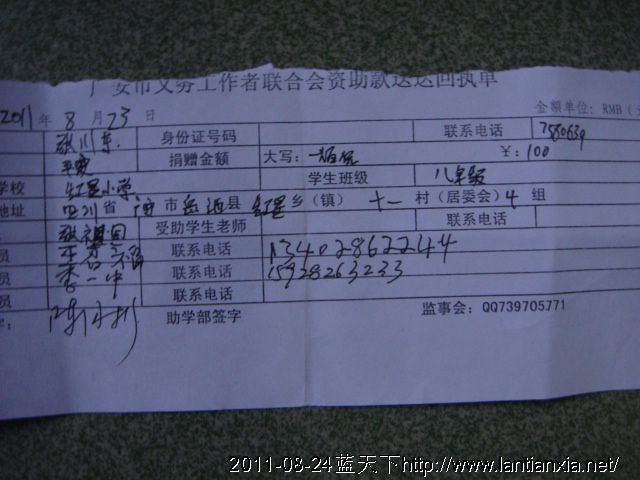 广安市义务工作者联合会资助款送达回执单
2011年8月23日 金额单位：RMB（
张川东 身份证号码 联系电话 7580639
捐赠金额 大写：一佰元 ¥：100
学校 红星小学 学生班级 八年级
地址 四川省 广安市岳池县 红星乡（镇） 十一村（居委会）4组
受助学生老师 联系电话
员 联系电话 13402862244
员 李 联系电话 15928263233
员 一中 联系电话
助学部签字 监事会：QQ739705771
2011-08-24蓝天下http://www.lantianxia.net/